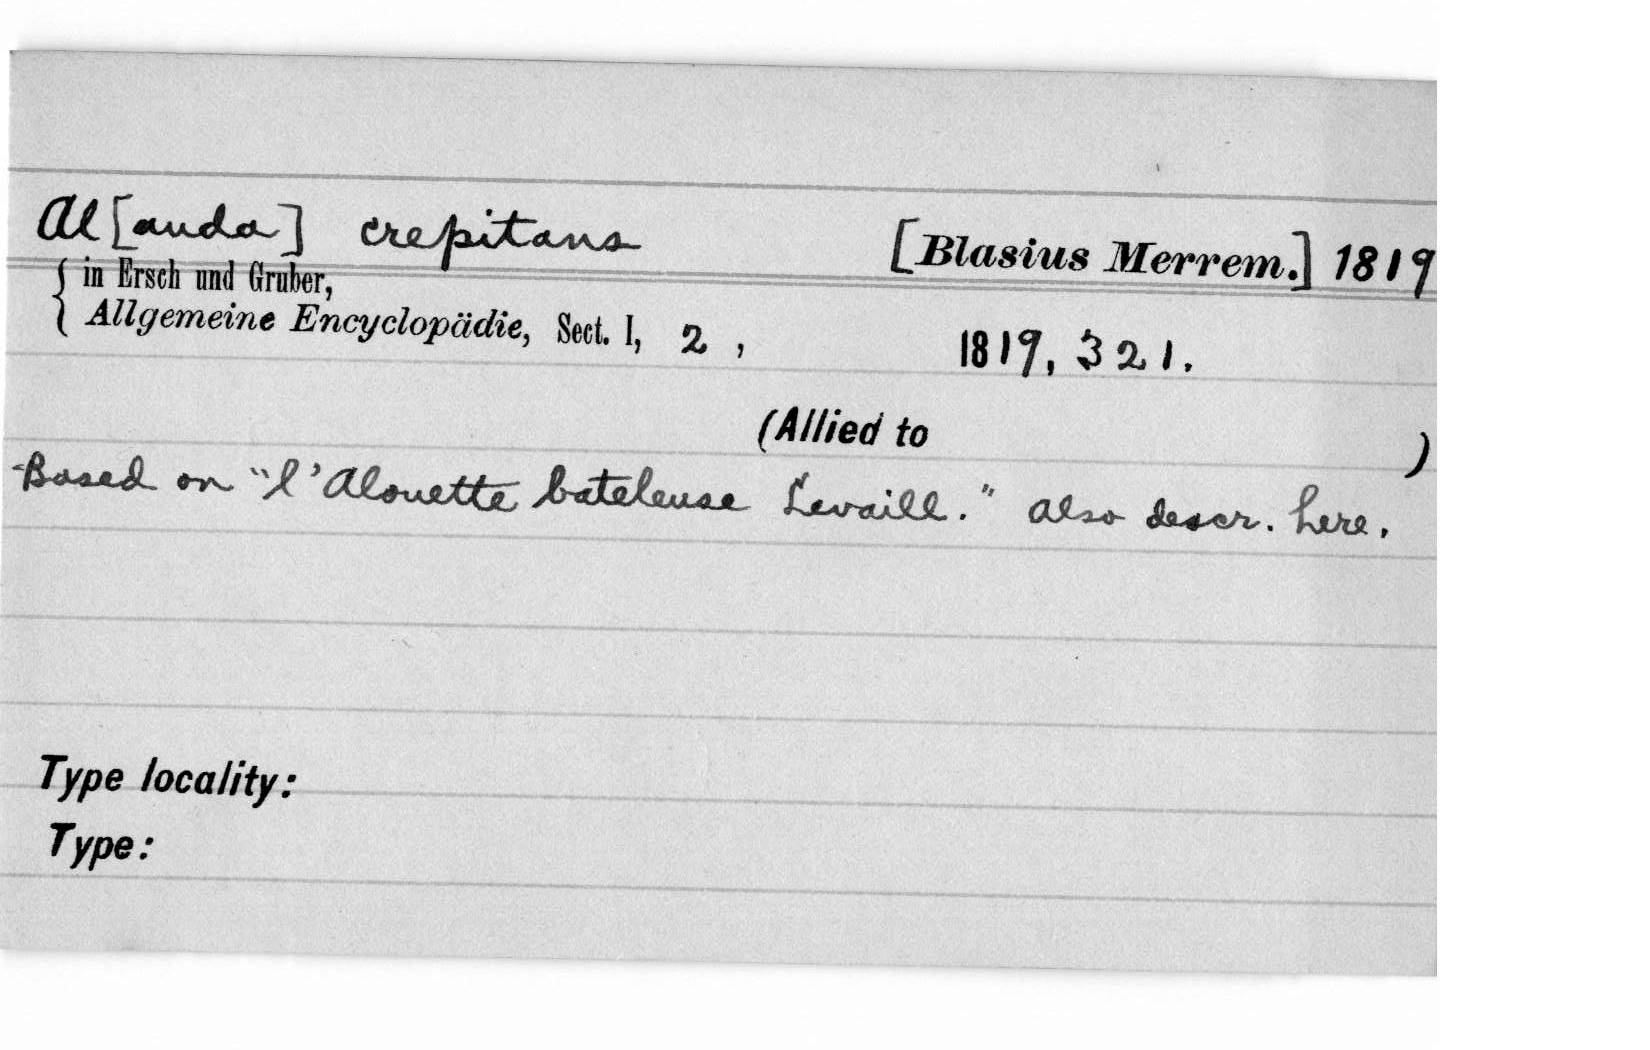 Al[auda] crepitans [Blasius Merrem.] 1819
{ in Ersch und Gruber,
Allgemeine Encyclopädie, Sect. I, 2, 1819, 321.
(Allied to )
Based on "l'Alouette bateleuse Levaill." Also descr. here.
Type locality:
Type: